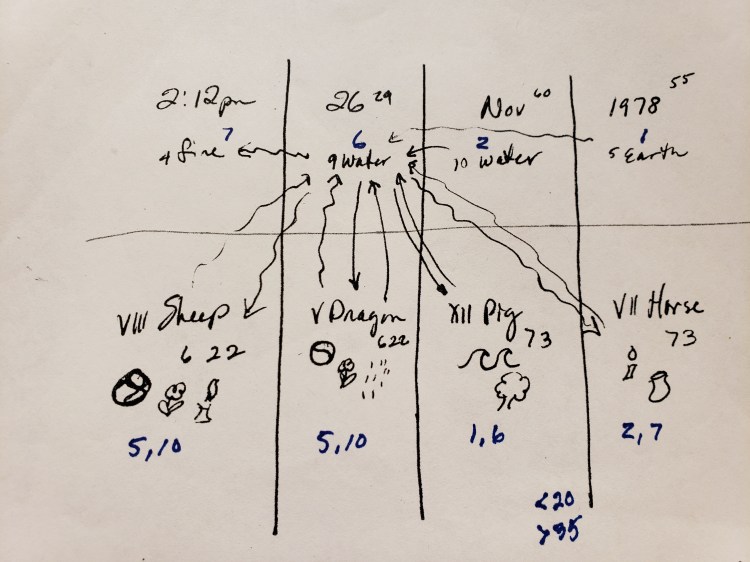 2:12pm 26 29 Nov 60 1978 55
7 6 2 1
4 fire 9 water 10 water 5 Earth
VIII Sheep V Dragon XII Pig VII Horse
6 22 622 73 73
5,10 5,10 1,6 2,7
<20